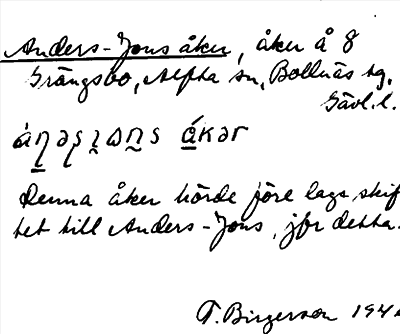 Anders-Jons åker, åker å 8
Grängsbo, Alfta sn, Bollnäs tg.
Gävl.l.
ákər
Denna åker hörde före laga skif
tet till Anders-Jons, jfr detta.
T. Birgerson 194